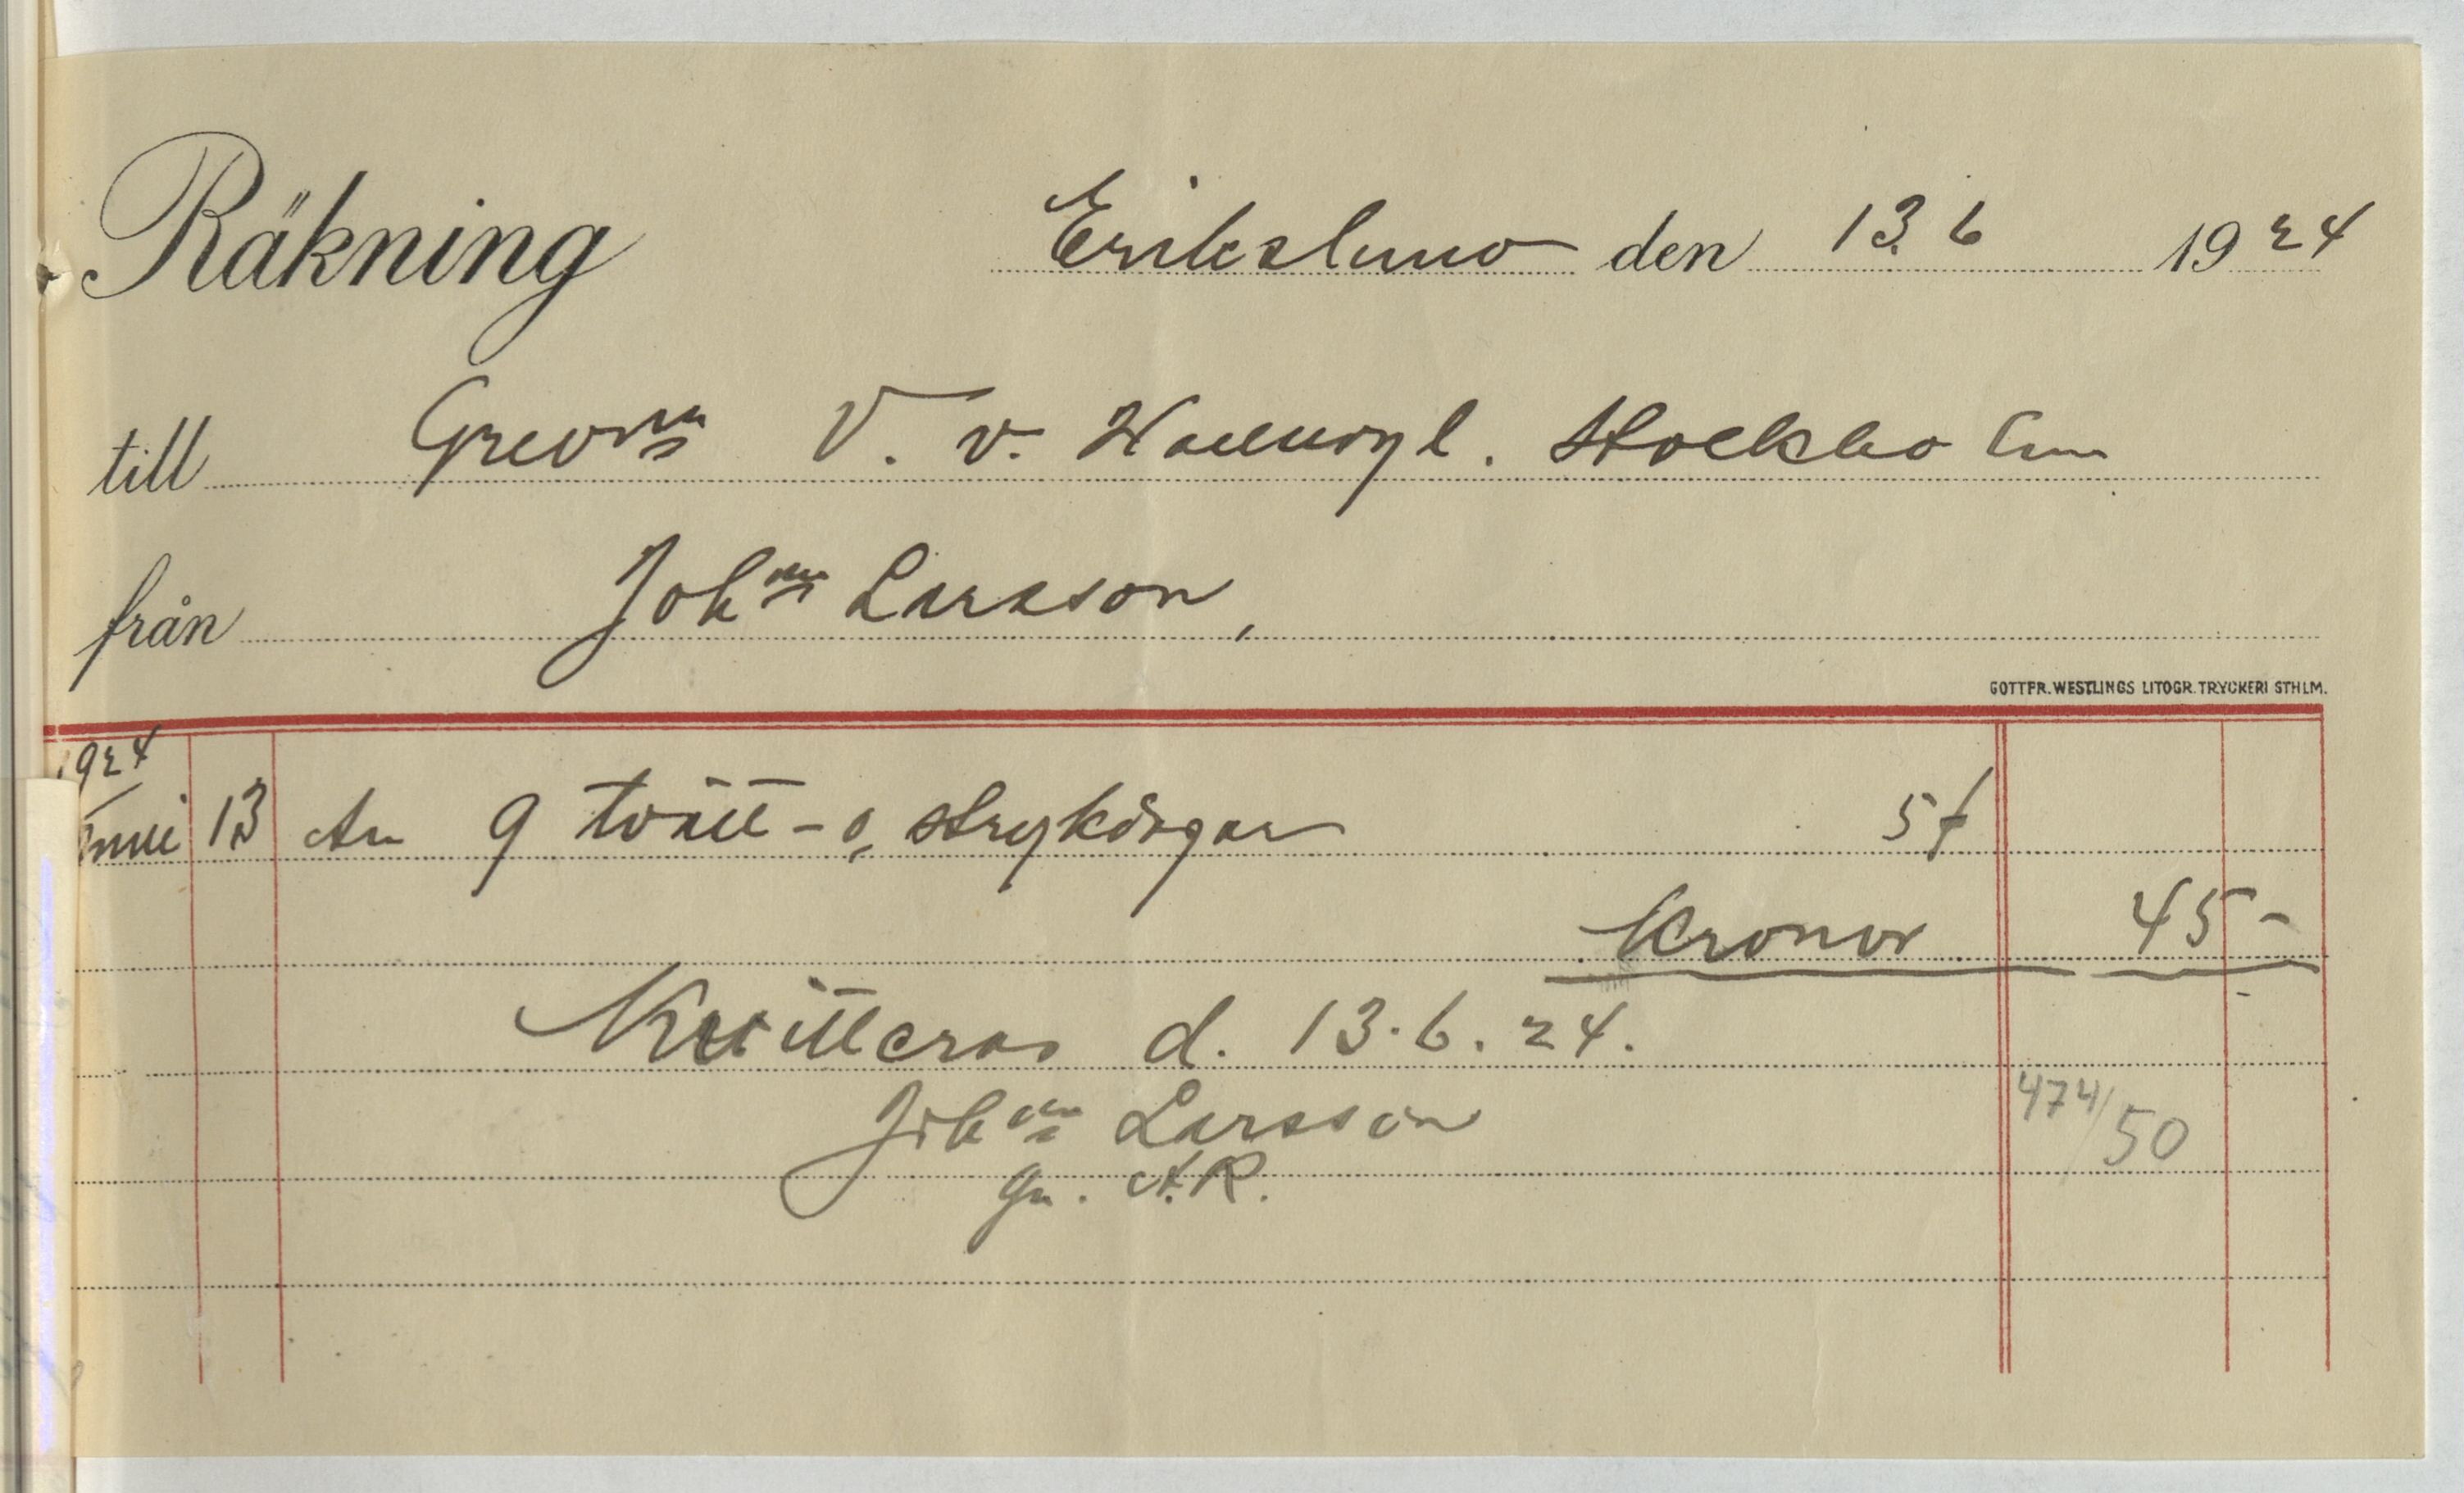 Räkning Erikslund den 13.6 1924
till Grevinn V. v. Hallwyl. Stockholm
från Johan Larsson,
GOTTFR. WESTLINGS LITOGR. TRYCKERI STHLM.
1924
Juni 13 An 9 tvätt- o. strykkorgar 5 f
Kronor 45 -
Kvitteras d. 13.6.24.
474/50
Johan Larsson
gn. A.R.